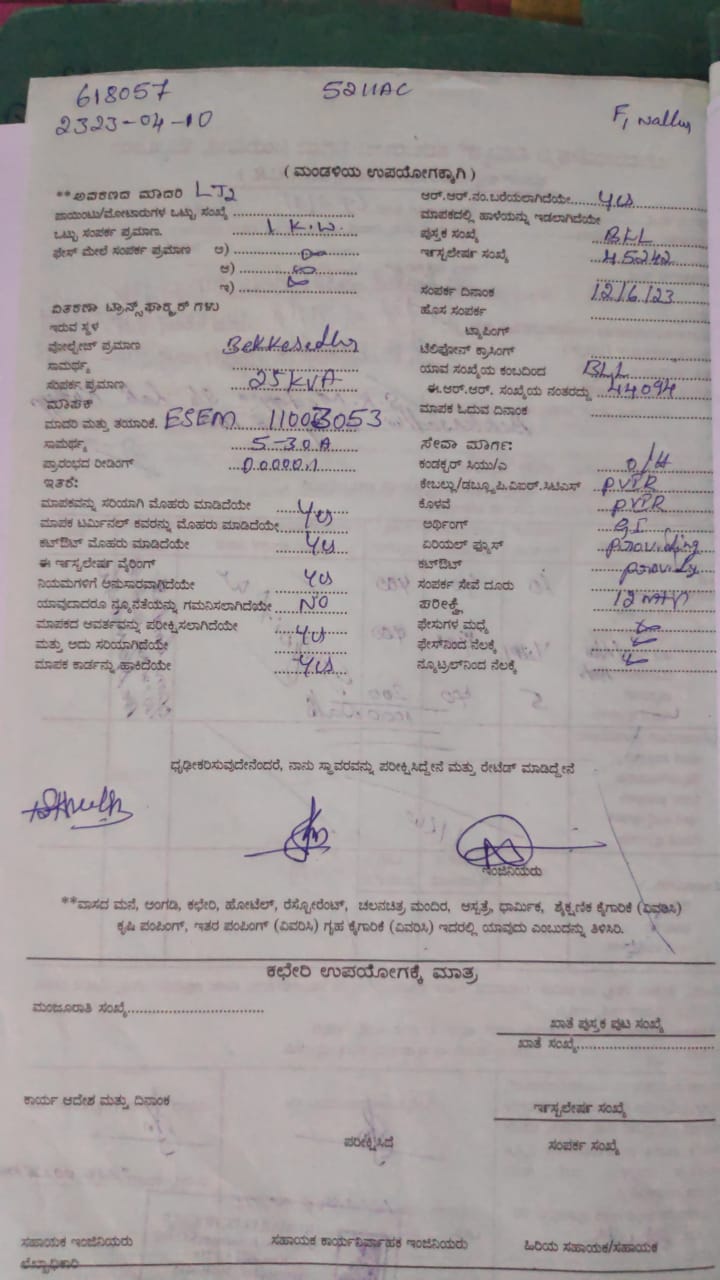 618057
5211AC
2323-04-10
F, Nallur
( ಮಂಡಳಿಯ ಉಪಯೋಗಕ್ಕಾಗಿ )
**ಅವಕಣದ ಮಾದರಿ LT2
ಪಾಯಿಂಟು/ಮೋಟಾರುಗಳ ಒಟ್ಟು ಸಂಖ್ಯೆ
ಒಟ್ಟು ಸಂಪರ್ಕ ಪ್ರಮಾಣ. 1 K.W.
ಫೇಸ್ ಮೇಲೆ ಸಂಪರ್ಕ ಪ್ರಮಾಣ ಅ)
ಆ)
ಇ)
ವಿತರಣಾ ಟ್ರಾನ್ಸ್‌ಫಾರ್ಮರ್ ಗಳು
ಇರುವ ಸ್ಥಳ
ವೋಲ್ಟೇಜ್ ಪ್ರಮಾಣ
ಸಾಮರ್ಥ್ಯ
ಸಂಪರ್ಕ ಪ್ರಮಾಣ 25KVA
ಮಾಪಕ
ಮಾದರಿ ಮತ್ತು ತಯಾರಿಕೆ. ESEM
ಸಾಮರ್ಥ್ಯ 5-30A
ಪ್ರಾರಂಭದ ರೀಡಿಂಗ್ 00000.1
ಇತರೆ:
ಮಾಪಕವನ್ನು ಸರಿಯಾಗಿ ಮೊಹರು ಮಾಡಿದೆಯೇ Yes
ಮಾಪಕ ಟರ್ಮಿನಲ್ ಕವರನ್ನು ಮೊಹರು ಮಾಡಿದೆಯೇ
ಕಟ್‌ಔಟ್ ಮೊಹರು ಮಾಡಿದೆಯೇ Yes
ಈ ಇನ್ಸ್ಟಲೇಷನ್ ವೈರಿಂಗ್
ನಿಯಮಗಳಿಗೆ ಅನುಸಾರವಾಗಿದೆಯೇ Yes
ಯಾವುದಾದರೂ ನ್ಯೂನತೆಯನ್ನು ಗಮನಿಸಲಾಗಿದೆಯೇ NO
ಮಾಪಕದ ಆವರ್ತವನ್ನು ಪರೀಕ್ಷಿಸಲಾಗಿದೆಯೇ
ಮತ್ತು ಅದು ಸರಿಯಾಗಿದೆಯೇ Yes
ಮಾಪಕ ಕಾರ್ಡನ್ನು ಹಾಕಿದೆಯೇ Yes
ಆರ್.ಆರ್.ನಂ.ಬರೆಯಲಾಗಿದೆಯೇ Yes
ಮಾಪಕದಲ್ಲಿ ಹಾಳೆಯನ್ನು ಇಡಲಾಗಿದೆಯೇ
ಪುಸ್ತಕ ಸಂಖ್ಯೆ BLL
ಇನ್ಸ್ಟಲೇಷನ್ ಸಂಖ್ಯೆ 45242
ಸಂಪರ್ಕ ದಿನಾಂಕ 12/6/23
ಹೊಸ ಸಂಪರ್ಕ
ಟ್ಯಾಪಿಂಗ್
ಟೆಲಿಫೋನ್ ಕ್ರಾಸಿಂಗ್
ಯಾವ ಸಂಖ್ಯೆಯ ಕಂಬದಿಂದ BLL
ಈ.ಆರ್.ಆರ್. ಸಂಖ್ಯೆಯ ನಂತರದ್ದು 44094
ಮಾಪಕ ಓದುವ ದಿನಾಂಕ
ಸೇವಾ ಮಾರ್ಗ:
ಕಂಡಕ್ಟರ್ ಸಿಯು/ಎ O/H
ಕೇಬಲ್ಲು/ಡಬ್ಲ್ಯೂ.ಪಿ.ವಿಐಆರ್.ಸಿಟಿಎಸ್ PVPR
ಕೊಳವೆ PVPR
ಅರ್ಥಿಂಗ್ G.I
ಏರಿಯಲ್ ಫ್ಯೂಸ್ Providing
ಕಟ್‌ಔಟ್
ಸಂಪರ್ಕ ಸೇವೆ ದೂರು
ಪರೀಕ್ಷೆ
ಫೇಸುಗಳ ಮಧ್ಯೆ
ಫೇಸ್‌ನಿಂದ ನೆಲಕ್ಕೆ
ನ್ಯೂಟ್ರಲ್‌ನಿಂದ ನೆಲಕ್ಕೆ
ಧೃಢೀಕರಿಸುವುದೇನೆಂದರೆ, ನಾನು ಸ್ಥಾವರವನ್ನು ಪರೀಕ್ಷಿಸಿದ್ದೇನೆ ಮತ್ತು ರೇಟೆಡ್ ಮಾಡಿದ್ದೇನೆ
ಇಂಜಿನಿಯರು
**ವಾಸದ ಮನೆ, ಅಂಗಡಿ, ಕಛೇರಿ, ಹೋಟೆಲ್, ರೆಸ್ಟೋರೆಂಟ್, ಚಲನಚಿತ್ರ ಮಂದಿರ, ಆಸ್ಪತ್ರೆ, ಧಾರ್ಮಿಕ, ಶೈಕ್ಷಣಿಕ ಕೈಗಾರಿಕೆ (ವಿವರಿಸಿ)
ಕೃಷಿ ಪಂಪಿಂಗ್, ಇತರ ಪಂಪಿಂಗ್ (ವಿವರಿಸಿ) ಗೃಹ ಕೈಗಾರಿಕೆ (ವಿವರಿಸಿ) ಇದರಲ್ಲಿ ಯಾವುದು ಎಂಬುದನ್ನು ತಿಳಿಸಿರಿ.
ಕಛೇರಿ ಉಪಯೋಗಕ್ಕೆ ಮಾತ್ರ
ಮಂಜೂರಾತಿ ಸಂಖ್ಯೆ
ಖಾತೆ ಪುಸ್ತಕ ಪುಟ ಸಂಖ್ಯೆ
ಖಾತೆ ಸಂಖ್ಯೆ
ಕಾರ್ಯ ಆದೇಶ ಮತ್ತು ದಿನಾಂಕ
ಇನ್ಸ್ಟಲೇಷನ್ ಸಂಖ್ಯೆ
ಪರೀಕ್ಷಿಸಿದೆ
ಸಂಪರ್ಕ ಸಂಖ್ಯೆ
ಸಹಾಯಕ ಇಂಜಿನಿಯರು
ಸಹಾಯಕ ಕಾರ್ಯನಿರ್ವಾಹಕ ಇಂಜಿನಿಯರು
ಹಿರಿಯ ಸಹಾಯಕ/ಸಹಾಯಕ
ಲೆಖ್ಖಾಧಿಕಾರಿ